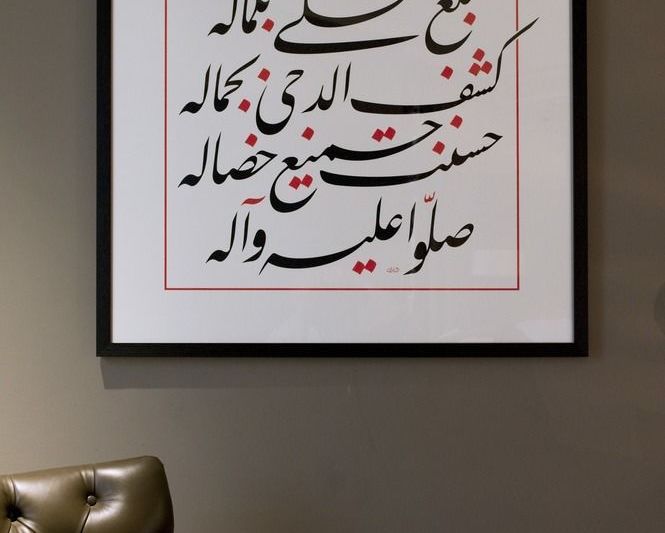 بلغ العلی بکماله
کشف الدجی بجماله
حسنت جمیع خصاله
صلّوا علیه وآله